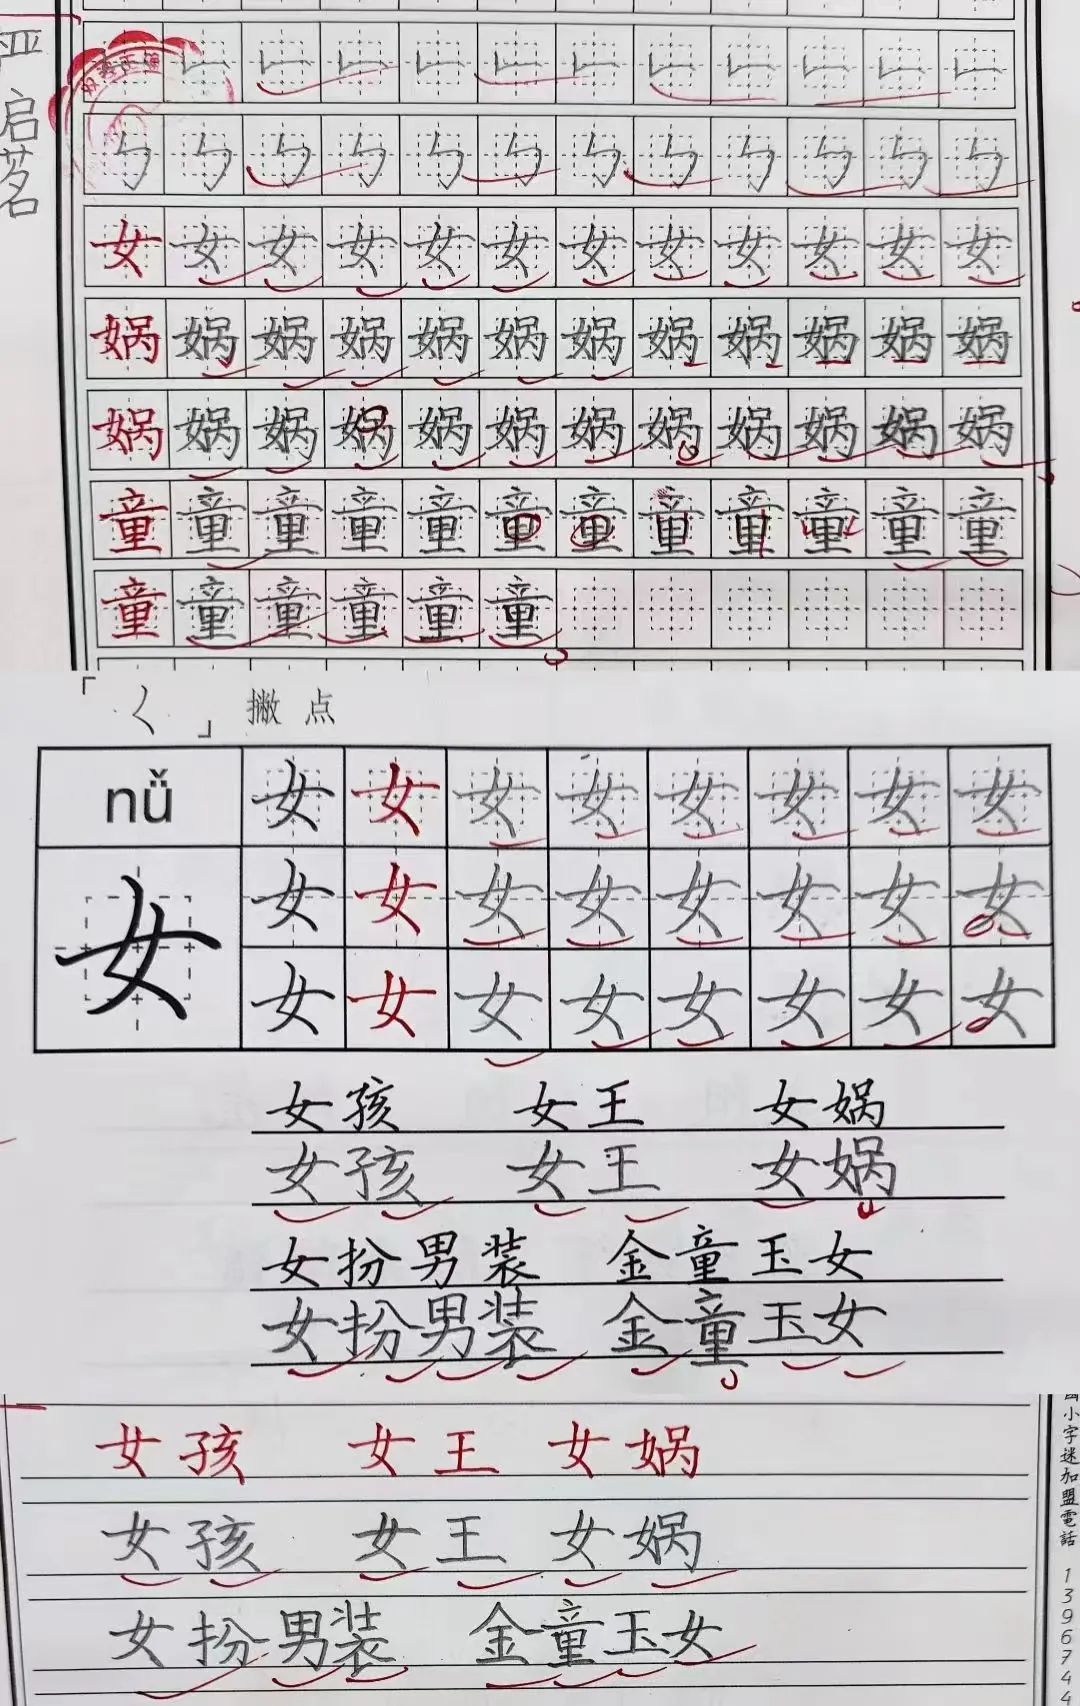 严启茗
女女女女女女女女女女女女
娲娲娲娲娲娲娲娲娲娲娲娲
娲娲娲娲娲娲娲娲娲娲娲娲
童童童童童童童童童童童童
童童童童童童
「𡿨」撇点
nǚ 女女女女女女女女
女 女女女女女女女女
女女女女女女女女
女孩 女王 女娲
女孩 女王 女娲
女扮男装 金童玉女
女扮男装 金童玉女
女孩 女王 女娲
女孩 女王 女娲
女扮男装 金童玉女
小字迷加盟電話 13967444